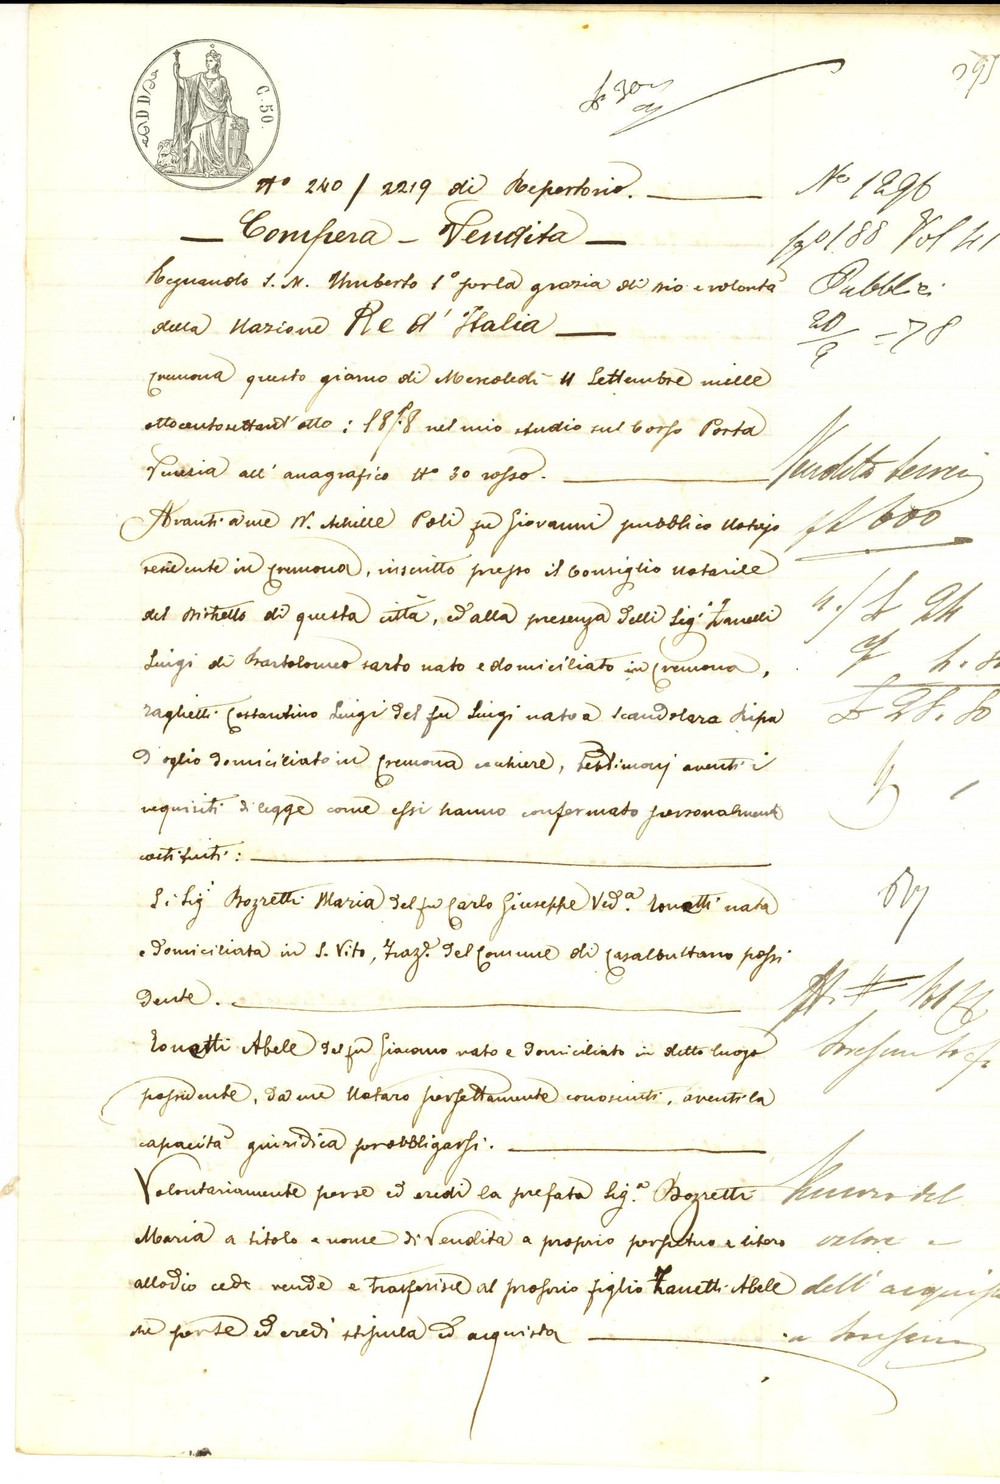 C. 50.
N° 240 / 2219 di Repertorio.
N° 1296
Compera - Vendita
188 Vol 41
Regnando S. M. Umberto 1° per la grazia di Dio e volontà
Pubblici
della Nazione Re d'Italia
20/9 = 78
Cremona questo giorno di Mercoledì 11 Settembre mille
ottocentosettant'otto : 1878 nel mio studio sul Corso Porta
Venezia all'anagrafico N° 30 rosso.
Vendita
Avanti a me N. Achille Poli fu Giovanni pubblico Notajo
600
residente in Cremona, inscritto presso il Consiglio Notarile
del Distretto di questa città, ed alla presenza delli Sig.i Zanelli
£ 24
Luigi di Bartolomeo sarto nato e domiciliato in Cremona,
4. 80
Zaghetti Costantino Luigi del fu Luigi nato a Scandolara Ripa
£ 28. 80
d'oglio domiciliato in Cremona cocchiere, testimonj aventi i
requisiti di legge come essi hanno confermato personalmente
costituiti :
Li Sig.i Bozzetti Maria del fu Carlo Giuseppe Ved.a Zonetti nata
e domiciliata in S. Vito, Fraz.e del Comune di Casalbuttano possi
dente.
Zonetti Abele del fu Giacomo nato e domiciliato in detto luogo
possidente, da me Notaro perfettamente conosciuti, aventi la
capacità giuridica per obbligarsi.
Volontariamente per se ed eredi la prefata Sig.a Bozzetti
del
Maria a titolo e nome di Vendita a proprio perpetuo e libero
valore e
allodio cede vende e trasferisce al proprio figlio Zanetti Abele
dell'
che per se ed eredi stipula ed acquista